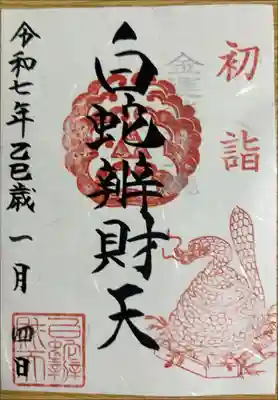 初詣
白蛇辨財天
令和七年乙巳歳一月四日